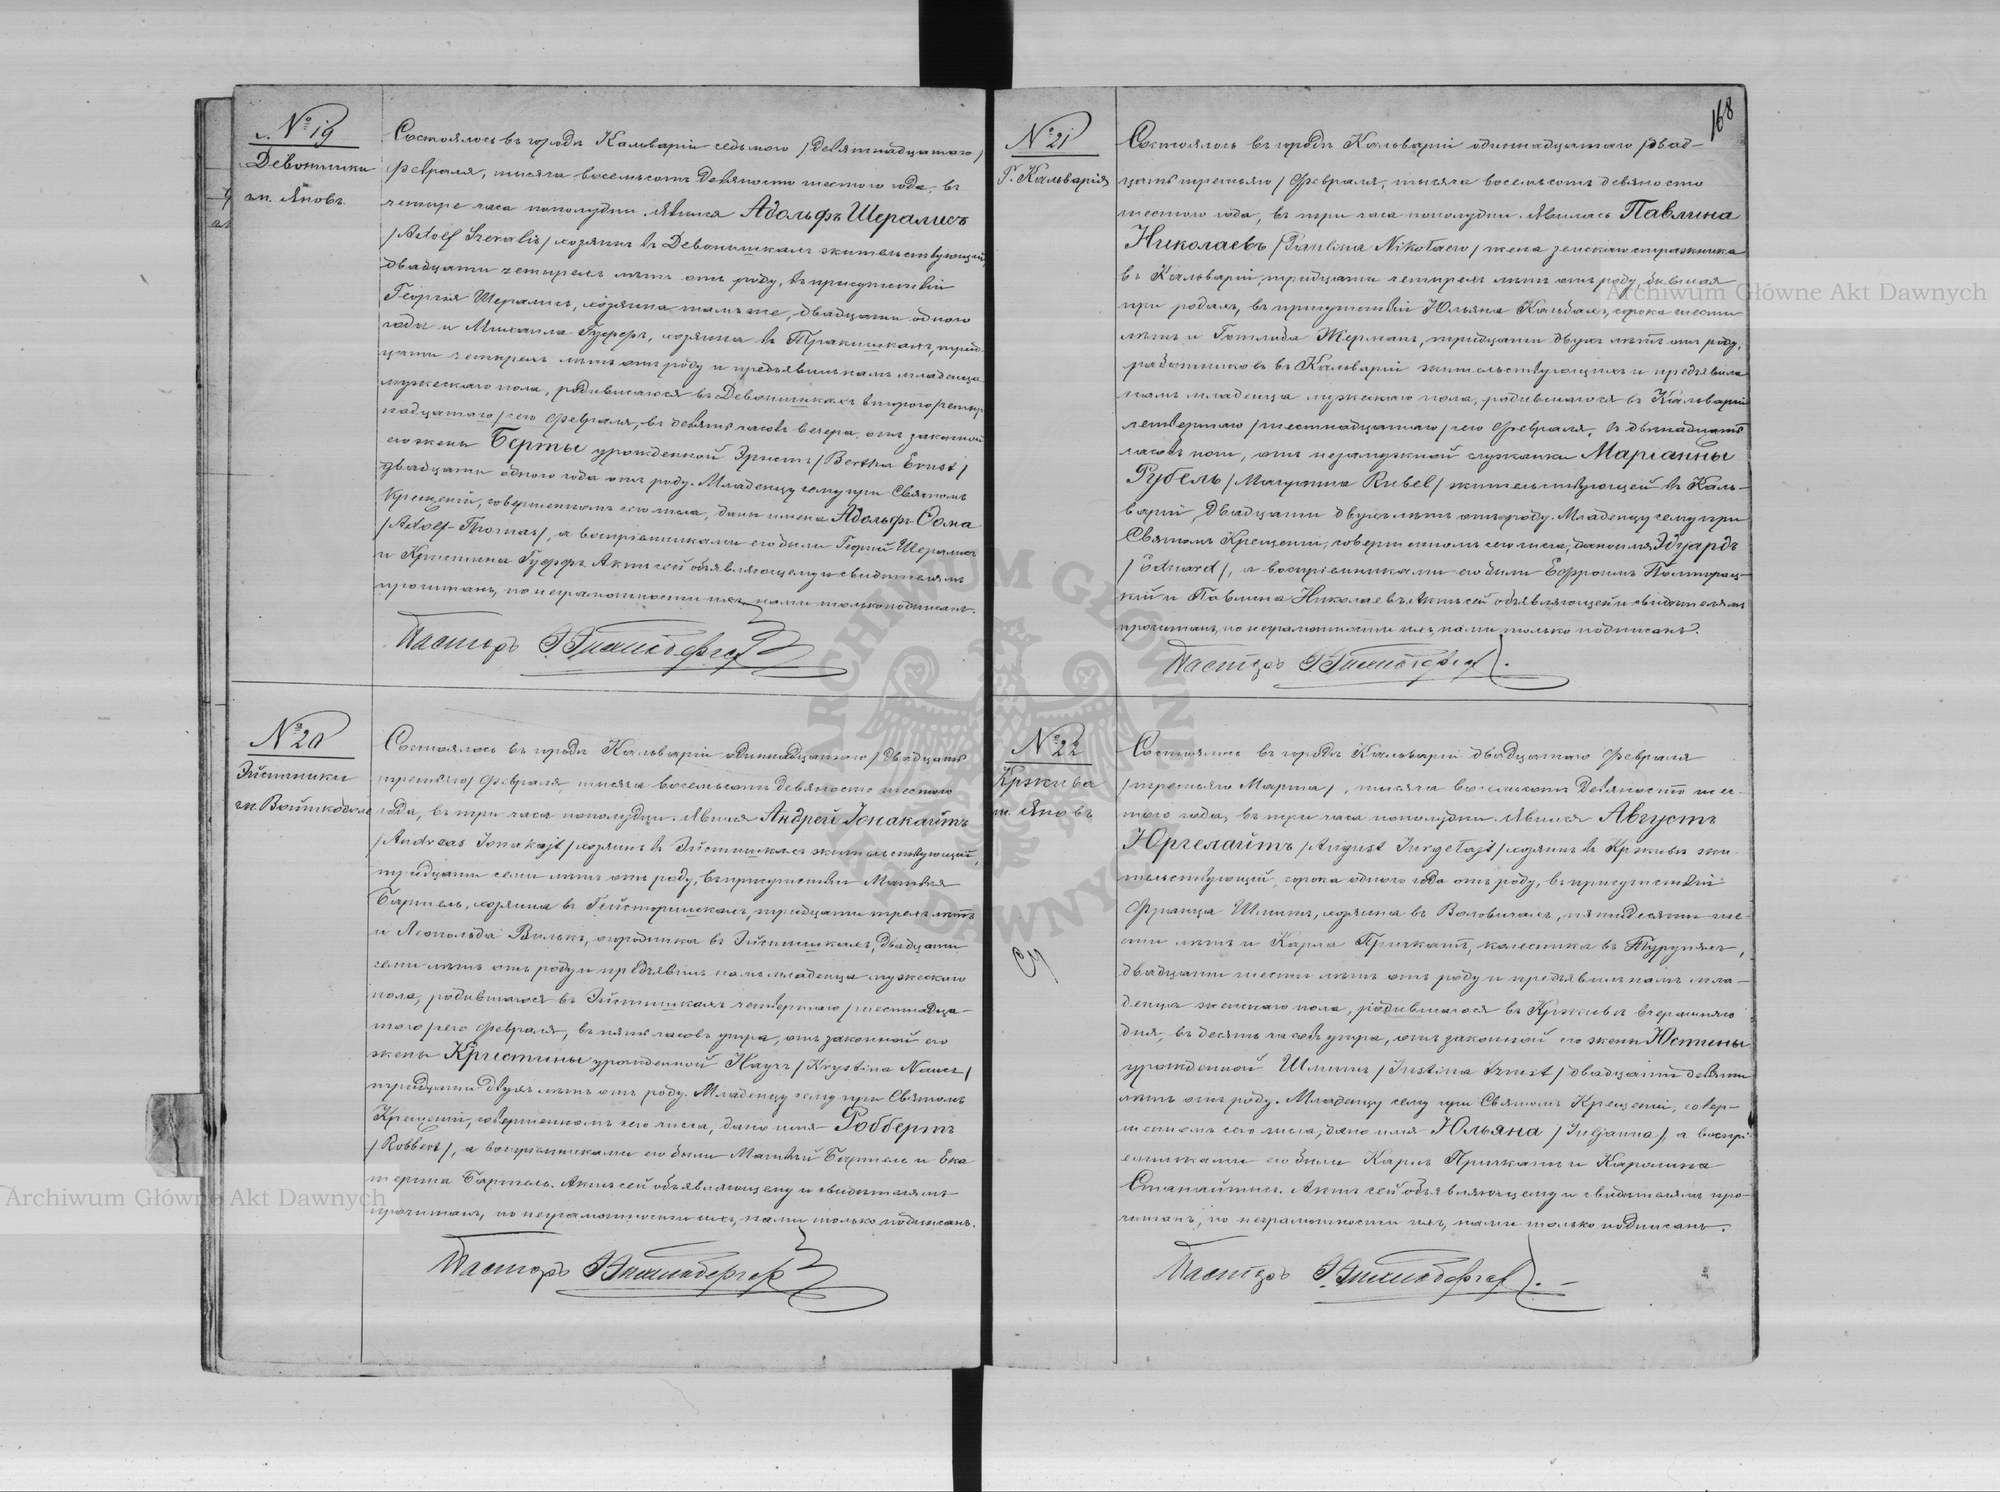 № 19
Девонишки
гм. Яновъ
Состоялось въ городѣ Кальваріи седьмого /девятнадцатаго/
февраля, тысяча восемьсотъ девяносто шестого года, въ
четыре часа пополудни. Явился Адольфъ Шералисъ
/Adolf Szeralis/ хозяинъ въ Девонишкахъ жительствующій,
двадцати четырехъ лѣтъ отъ роду, въ присутствіи
Георгія Шералисъ, хозяина тамъ же, двадцати одного
года и Михаила Гуфферъ, хозяина въ Тракишкахъ, трид-
цати четырехъ лѣтъ отъ роду и предъявилъ намъ младенца
мужескаго пола, родившагося въ Девонишкахъ второго /четыр-
надцатаго/ сего февраля, въ девять часовъ вечера, отъ законной
его жены Берты урожденной Эрнстъ /Bertha Ernst/
двадцати одного года отъ роду. Младенцу сему при Святомъ
Крещеніи, совершенномъ сего числа, даны имена Адольфъ Ѳома
/Adolf-Thomas/, а воспріемниками его были Георгій Шералисъ
и Кристина Гуффъ. Актъ сей объявляющему и свидѣтелямъ
прочитанъ, по неграмотности ихъ, нами только подписанъ.
Пасторъ
№ 20
Эйстишки
гм. Войткобole
Состоялось въ городѣ Кальваріи одиннадцатаго /двадцать
третьяго/ февраля, тысяча восемьсотъ девяносто шестого
года, въ три часа пополудни. Явился Андрей Іонакайтъ
/Andreas Jonakajt/ хозяинъ въ Эйстишкахъ жительствующій,
тридцати семи лѣтъ отъ роду, въ присутствіи Матвѣя
Бартель, хозяина въ Гейсторишкахъ, тридцати трехъ лѣтъ
и Леопольда Вилькъ, огородника въ Эйстишкахъ, двадцати
семи лѣтъ отъ роду и предъявилъ намъ младенца мужескаго
пола, родившагося въ Эйстишкахъ четвертаго /шестнадца-
таго/ сего февраля, въ пять часовъ утра, отъ законной его
жены Кристины урожденной Науъ /Krystina Naus/
тридцати двухъ лѣтъ отъ роду. Младенцу сему при Святомъ
Крещеніи, совершенномъ сего числа, дано имя Роббертъ
/Robbert/, а воспріемниками его были Матвѣй Бартель и Ека
терина Бартель. Актъ сей объявляющему и свидѣтелямъ
прочитанъ, по неграмотности ихъ, нами только подписанъ.
Пасторъ
168
№ 21
Г. Кальварія
Состоялось въ городѣ Кальваріи одиннадцатаго /двад-
цать третьяго/ февраля, тысяча восемьсотъ девяносто
шестого года, въ три часа пополудни. Явилась Павлина
Николаевъ /Paulina Nikołaew/ жена земскаго стражника
въ Кальваріи, тридцати четырехъ лѣтъ отъ роду бывшая
при родахъ, въ присутствіи Юльяна Кандахъ, сорока шести
лѣтъ и Готлиба Жерманъ, тридцати двухъ лѣтъ отъ роду,
работниковъ въ Кальваріи жительствующихъ и предъявила
намъ младенца мужескаго пола, родившагося въ Кальваріи
четвертаго /шестнадцатаго/ сего февраля, въ двѣнадцать
часовъ ночи, отъ незамужной служанки Маріанны
Рубель /Maryanna Rubel/ жительствующей въ Каль-
варіи, двадцати двухъ лѣтъ отъ роду. Младенцу сему при
Святомъ Крещеніи, совершенномъ сего числа, дано имя Эдуардъ
/Eduard/, а воспріемниками его были Ефроимъ Полторац-
кій и Павлина Николаевъ. Актъ сей объявляющей и свидѣтелямъ
прочитанъ, по неграмотности ихъ, нами только подписанъ.
Пасторъ
№ 22
Кржива
гм. Яновъ
Состоялось въ городѣ Кальваріи двадцатаго февраля
/третьяго Марта/, тысяча восемьсотъ девяносто шес-
таго года, въ три часа пополудни. Явился Августъ
Юргелайтъ /August Jurgełajt/ хозяинъ въ Крживѣ жи-
тельствующій, сорока одного года отъ роду, въ присутствіи
Франца Шмитъ, хозяина въ Воловичахъ, пятидесяти ше-
сти лѣтъ и Карла Причкатъ, колесника въ Турупяхъ,
двадцати шести лѣтъ отъ роду и предъявилъ намъ мла-
денца женскаго пола, родившагося въ Крживѣ вчерашняго
дня, въ десять часовъ утра, отъ законной его жены Юстины
урожденной Шмитъ /Justina Szmit/ двадцати девяти
лѣтъ отъ роду. Младенцу сему при Святомъ Крещеніи, совер-
шенномъ сего числа, дано имя Юльяна /Juljanna/, а воспрі-
емниками его были Карлъ Причкатъ и Каролина
Станайтисъ. Актъ сей объявляющему и свидѣтелямъ про-
читанъ, по неграмотности ихъ, нами только подписанъ.
Пасторъ
Archiwum Główne Akt Dawnych
Archiwum Główne Akt Dawnych
ARCHIWUM GŁÓWNE AKT DAWNYCH